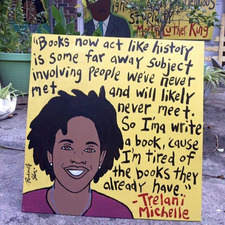 Stupidity
Martin Luther King
"Books now act like history
is some far away subject
involving people we've never
met and will likely
never meet.
So Ima write
a book, 'cause
I'm tired of
the books they
already have."
-Trelani
Michelle